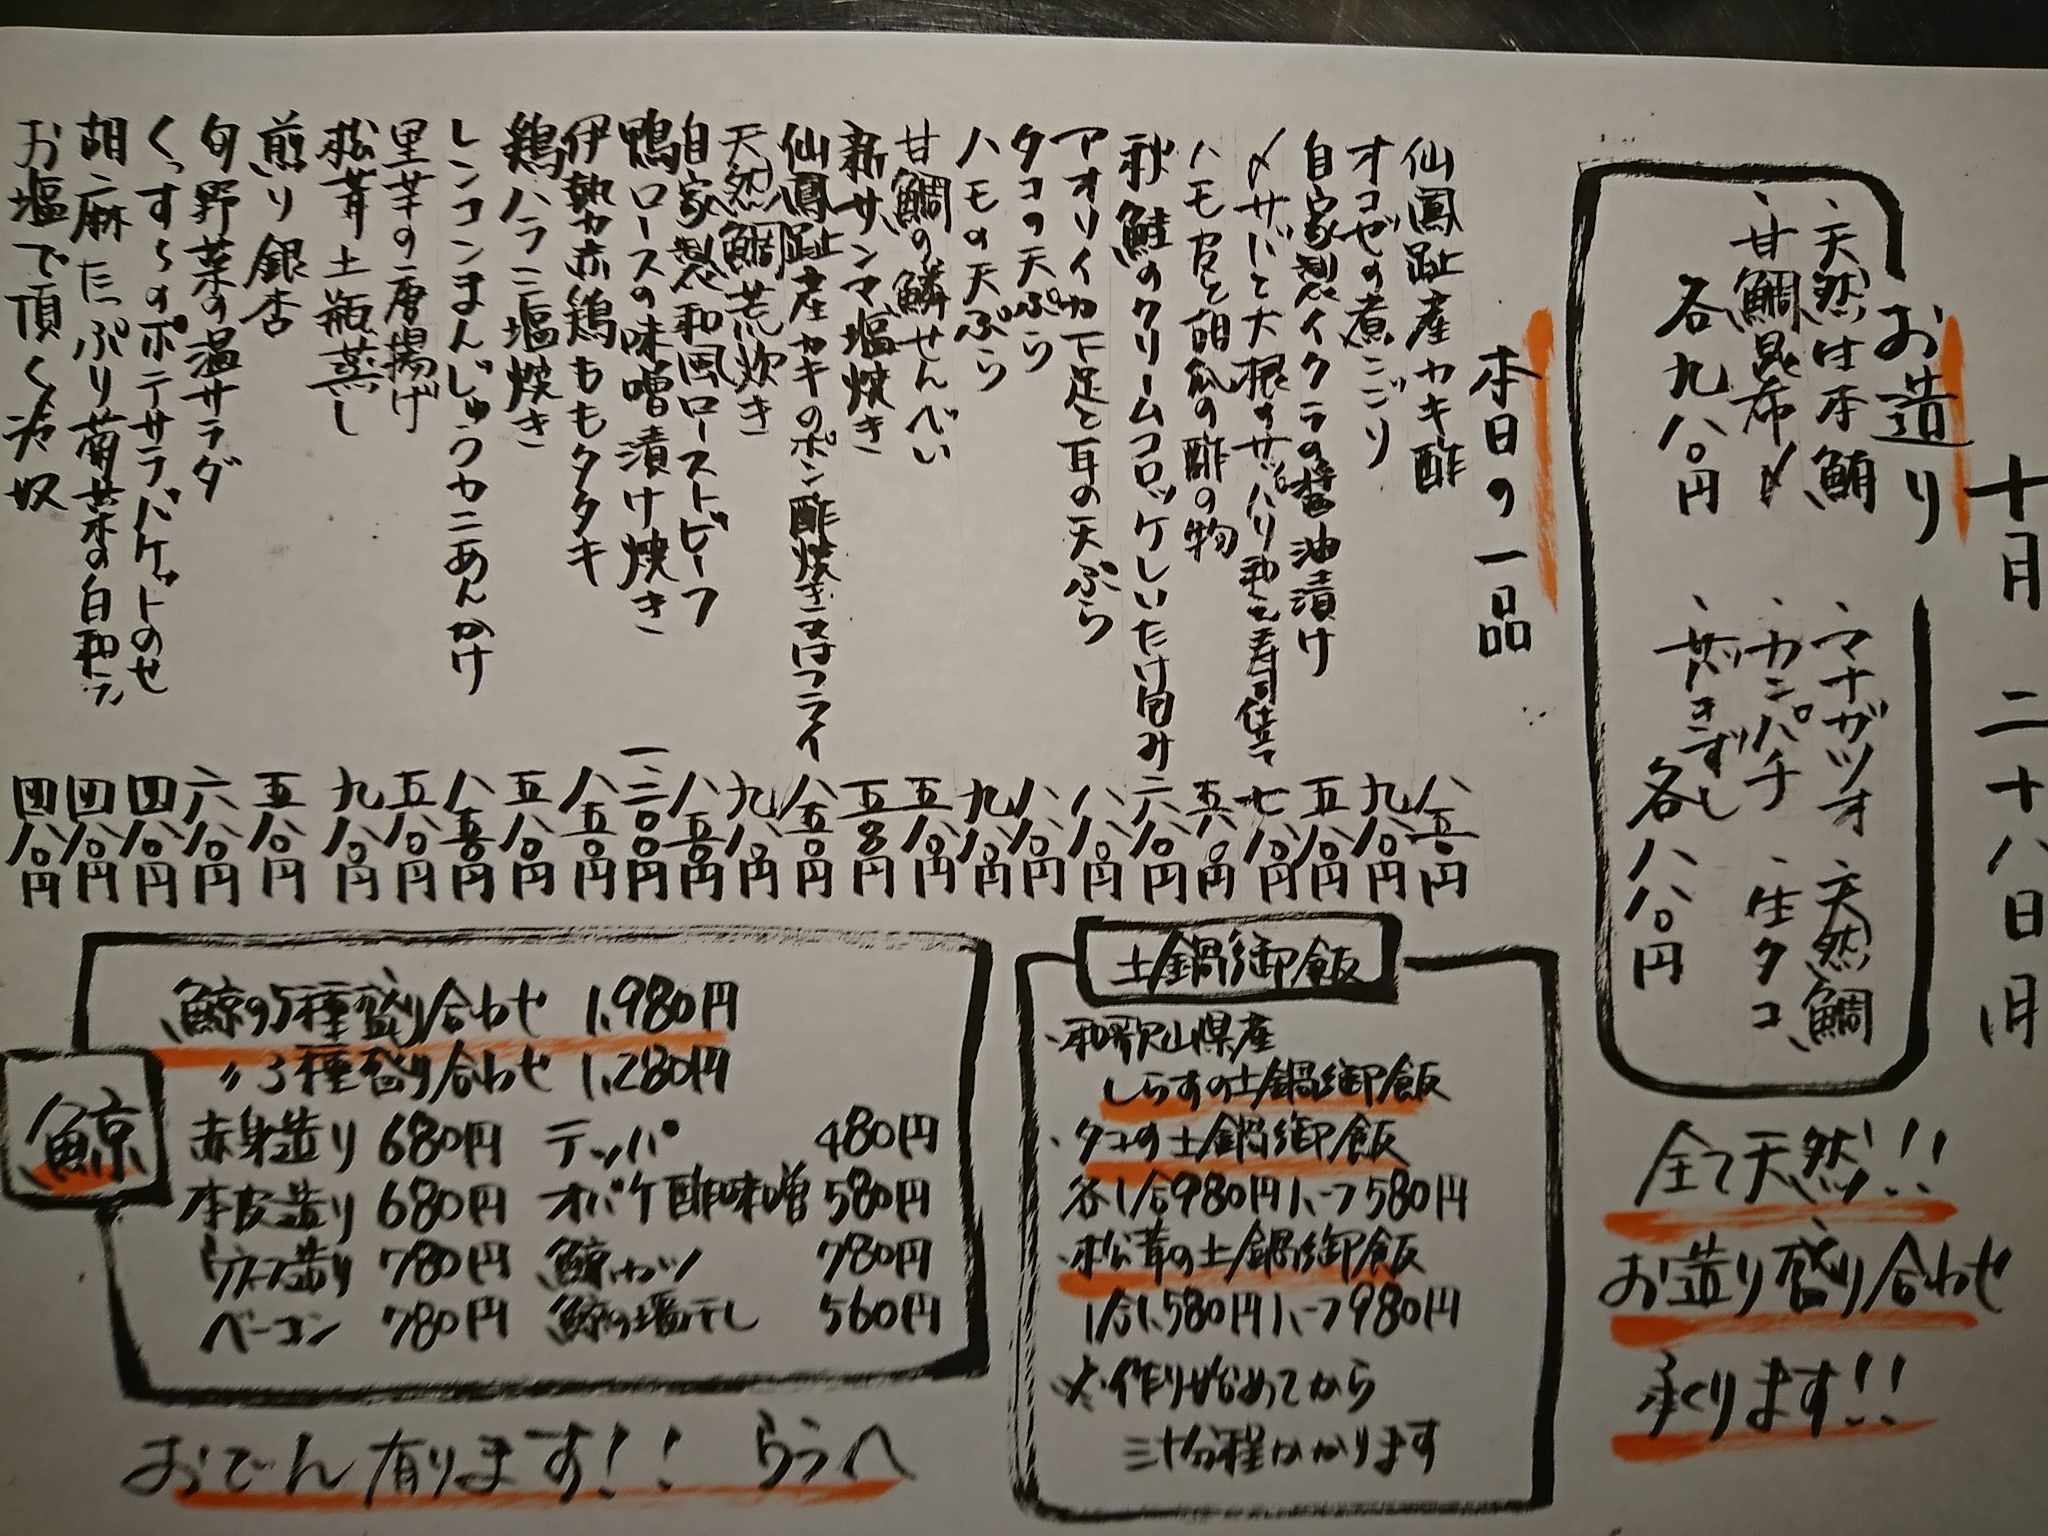 十月二十八日
お造り
、天然生本鮪
、甘鯛昆布〆
各九八〇円
、マナガツオ、天然鯛
、カンパチ、生タコ
、サバきずし
各八八〇円
全て天然!!
お造り盛り合わせ
承くります!!
本日の一品
仙鳳趾産カキ酢 八五〇円
オコゼの煮こごり 九八〇円
自家製イクラの醤油漬け 五八〇円
〆サバと大根のサッパリ和え寿司仕立て 七八〇円
ハモ皮と胡瓜の酢の物 五八〇円
秋鮭のクリームコロッケしいたけ包み 二六八〇円
アオリイカ下足と耳の天ぷら 八八〇円
タコの天ぷら 八八〇円
ハモの天ぷら 九八〇円
甘鯛の鱗せんべい 五八〇円
新サンマ塩焼き 五八〇円
仙鳳趾産カキのポン酢焼き又はフライ 八五〇円
天然鯛荒炊き 九八〇円
自家製和風ローストビーフ 八五〇円
鴨ロースの味噌漬け焼き 一二〇〇円
伊勢赤鶏ももタタキ 八五〇円
鶏ハラミ塩焼き 五八〇円
レンコンまんじゅうカニあんかけ 八五〇円
里芋の唐揚げ 五八〇円
松茸土瓶蒸し 九八〇円
煎り銀杏 五八〇円
旬野菜の温サラダ 六八〇円
くっすらのポテサラバケットのせ 四八〇円
胡麻たっぷり菊菜の白和え 四八〇円
お塩で頂く冷奴 四八〇円
土鍋御飯
・和歌山県産
しらすの土鍋御飯
・タコの土鍋御飯
各1合980円ハーフ580円
・松茸の土鍋御飯
1合1,580円ハーフ980円
※作り始めてから
三十分程かかります
鯨
鯨の5種盛り合わせ 1,980円
〃3種盛り合わせ 1,280円
赤身造り 680円 テッパ 480円
本皮造り 680円 オバケ酢味噌 580円
ウネス造り 780円 鯨カツ 780円
ベーコン 780円 鯨の塩干し 560円
おでん有ります!! うらへ